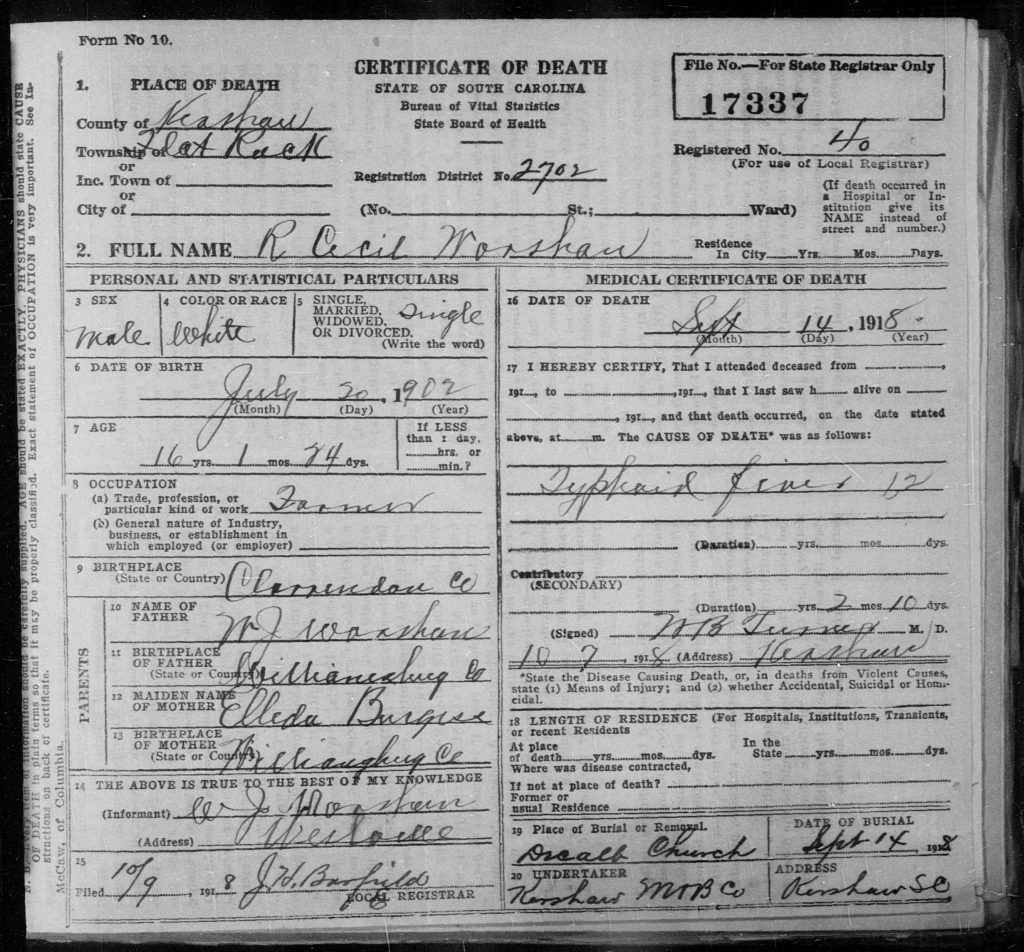 Form No 10.
1. PLACE OF DEATH
County of Kershaw
Township of Flat Rock
or
Inc. Town of
or
City of
CERTIFICATE OF DEATH
STATE OF SOUTH CAROLINA
Bureau of Vital Statistics
State Board of Health
Registration District No. 2702
(No. St.; Ward)
File No.—For State Registrar Only
17337
Registered No. 40
(For use of Local Registrar)
(If death occurred in
a Hospital or In-
stitution give its
NAME instead of
street and number.)
2. FULL NAME R Cecil Worsham
Residence
In City Yrs. Mos. Days.
PERSONAL AND STATISTICAL PARTICULARS
3 SEX
Male
4 COLOR OR RACE
White
5 SINGLE,
MARRIED,
WIDOWED,
OR DIVORCED.
(Write the word)
Single
6 DATE OF BIRTH
July 20, 1902
(Month) (Day) (Year)
7 AGE
16 yrs. 1 mos. 24 dys.
If LESS
than 1 day.
hrs. or
min.?
8 OCCUPATION
(a) Trade, profession, or
particular kind of work Farmer
(b) General nature of Industry,
business, or establishment in
which employed (or employer)
9 BIRTHPLACE
(State or Country) Clarrendon Co
PARENTS
10 NAME OF
FATHER
W J Worsham
11 BIRTHPLACE
OF FATHER
(State or Country) Williamsburg Co
12 MAIDEN NAME
OF MOTHER
Elleda Burgess
13 BIRTHPLACE
OF MOTHER
(State or Country) Williamsburg Co
14 THE ABOVE IS TRUE TO THE BEST OF MY KNOWLEDGE
(Informant) W J Worsham
(Address) Westville
15
Filed 10/9, 1918 J.H. Barfield
LOCAL REGISTRAR
MEDICAL CERTIFICATE OF DEATH
16 DATE OF DEATH
Sept 14, 1918.
(Month) (Day) (Year)
17 I HEREBY CERTIFY, That I attended deceased from
191, to , 191, that I last saw h alive on
, 191, and that death occurred, on the date stated
above, at m. The CAUSE OF DEATH* was as follows:
Typhoid fever 12
(Duration) yrs. mos. dys.
Contributory
(SECONDARY)
(Duration) yrs. 2 mos. 10 dys.
(Signed) W B Turner M. D.
10 7, 1918 (Address) Kershaw
*State the Disease Causing Death, or, in deaths from Violent Causes,
state (1) Means of Injury; and (2) whether Accidental, Suicidal or Homi-
cidal.
18 LENGTH OF RESIDENCE (For Hospitals, Institutions, Transients,
or recent Residents
At place
of death yrs. mos. dys.
In the
State yrs. mos. dys.
Where was disease contracted,
If not at place of death?
Former or
usual Residence
19 Place of Burial or Removal.
Decalb Church
DATE OF BURIAL
Sept 14, 1918
20 UNDERTAKER
Kershaw M&B Co
ADDRESS
Kershaw SC
AGE should be stated EXACTLY. PHYSICIANS should state CAUSE
OF DEATH in plain terms so that it may be properly classified. Exact statement of OCCUPATION is very important. See In-
structions on back of certificate.
McCaw, of Columbia.